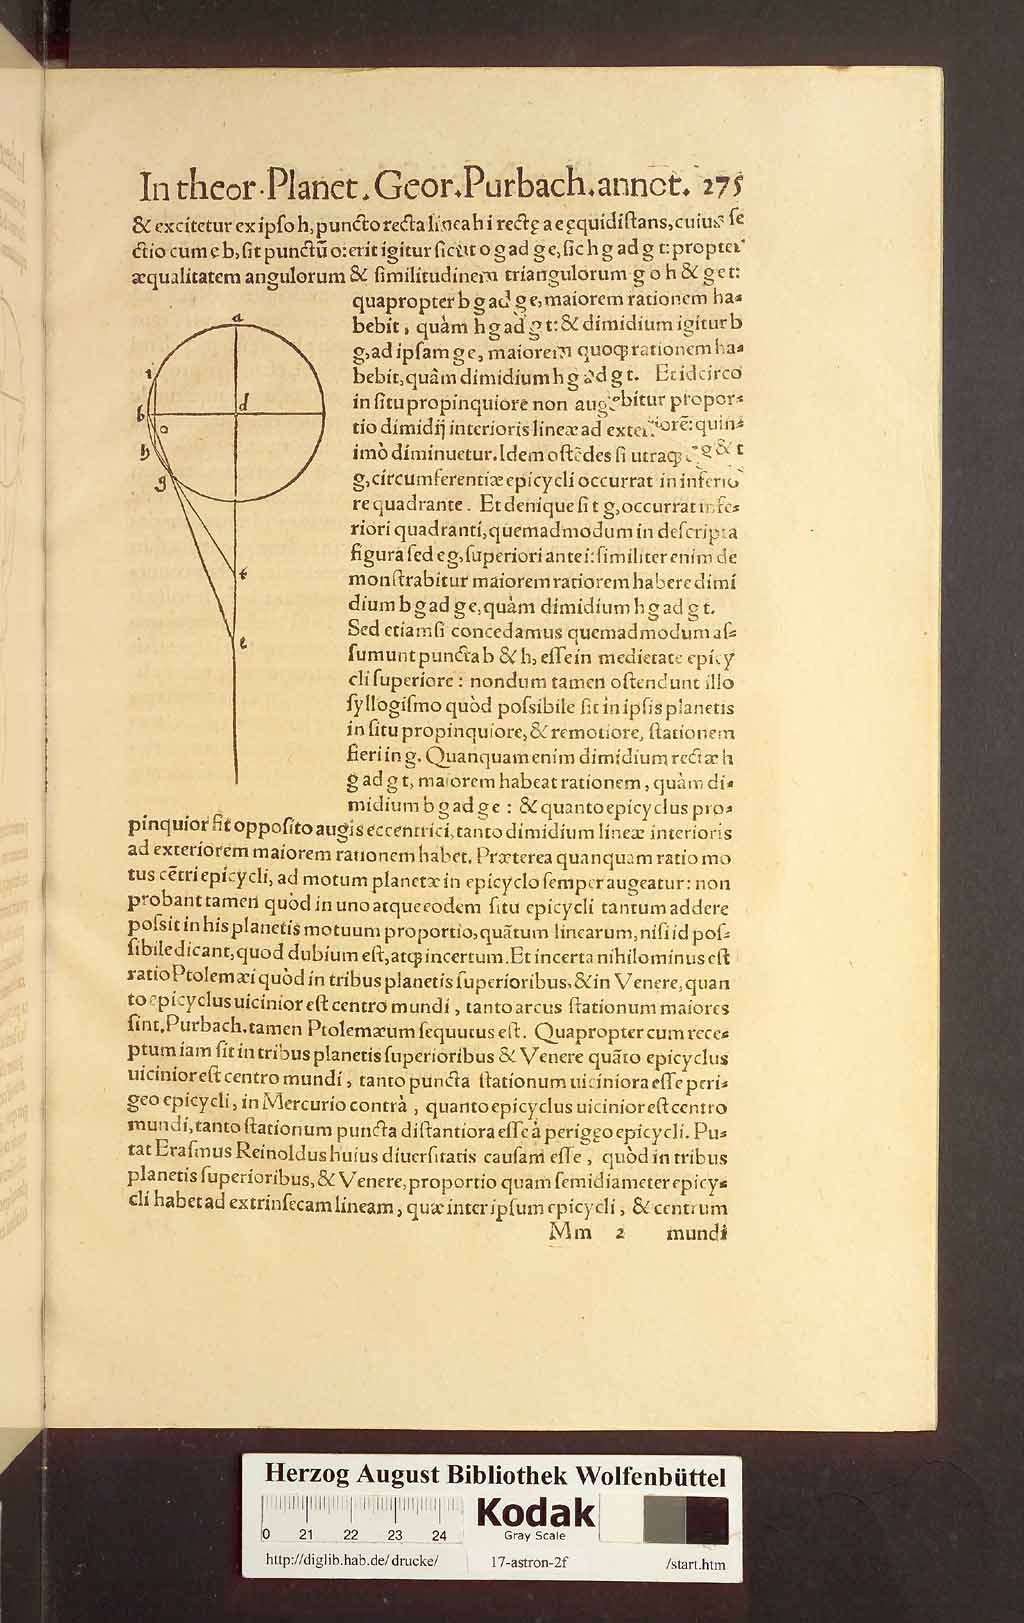 In theor. Planet. Geor. Purbach. annot. 275
& excitetur ex ipso h, puncto recta linea h i rectę a e ęquidistans, cuius se
ctio cum e b, sit punctũ o: erit igitur sicut o g ad g e, sic h g ad g t: propter
æqualitatem angulorum & similitudinem triangulorum g o h & g e t:
quapropter b g ad g e, maiorem rationem ha-
bebit, quàm h g ad g t: & dimidium igitur b
g, ad ipsam g e, maiorem quoqꝫ rationem ha-
bebit, quàm dimidium h g ad g t. Et idcirco
in situ propinquiore non augebitur propor-
tio dimidij interioris lineæ ad exteriorē: quin-
imò diminuetur. Idem ostēdes si utraqꝫ e g & t
g, circumferentiæ epicycli occurrat in inferio
re quadrante. Et denique si t g, occurrat infe-
riori quadranti, quemadmodum in descripta
figura sed e g, superiori ante i: similiter enim de
monstrabitur maiorem rationem habere dimi
dium b g ad g e, quàm dimidium h g ad g t.
Sed etiamsi concedamus quemadmodum as-
sumunt puncta b & h, esse in medietate epicy
cli superiore: nondum tamen ostendunt illo
syllogismo quòd possibile sit in ipsis planetis
in situ propinquiore, & remotiore, stationem
fieri in g. Quanquam enim dimidium rectæ h
g ad g t, maiorem habeat rationem, quàm di-
midium b g ad g e: & quanto epicyclus pro-
pinquior fit opposito augis eccentrici, tanto dimidium lineæ interioris
ad exteriorem maiorem rationem habet. Præterea quanquam ratio mo
tus cētri epicycli, ad motum planetæ in epicyclo semper augeatur: non
probant tamen quòd in uno atque eodem situ epicycli tantum addere
possit in his planetis motuum proportio, quātum linearum, nisi id pos-
sibile dicant, quod dubium est, atqꝫ incertum. Et incerta nihilominus est
ratio Ptolemæi quòd in tribus planetis superioribus, & in Venere, quan
to epicyclus uicinior est centro mundi, tanto arcus stationum maiores
sint. Purbach. tamen Ptolemæum sequutus est. Quapropter cum rece-
ptum iam sit in tribus planetis superioribus & Venere quāto epicyclus
uicinior est centro mundi, tanto puncta stationum uiciniora esse peri-
geo epicycli, in Mercurio contrà, quanto epicyclus uicinior est centro
mundi, tanto stationum puncta distantiora esse à perigęo epicycli. Pu-
tat Erasmus Reinoldus huius diuersitatis causam esse, quòd in tribus
planetis superioribus, & Venere, proportio quam semidiameter epicy-
cli habet ad extrinsecam lineam, quæ inter ipsum epicycli, & centrum
Mm 2 mundi
a
i
b
d
o
h
g
t
e
Herzog August Bibliothek Wolfenbüttel
0 21 22 23 24
Kodak
Gray Scale
http://diglib.hab.de/drucke/ 17-astron-2f /start.htm